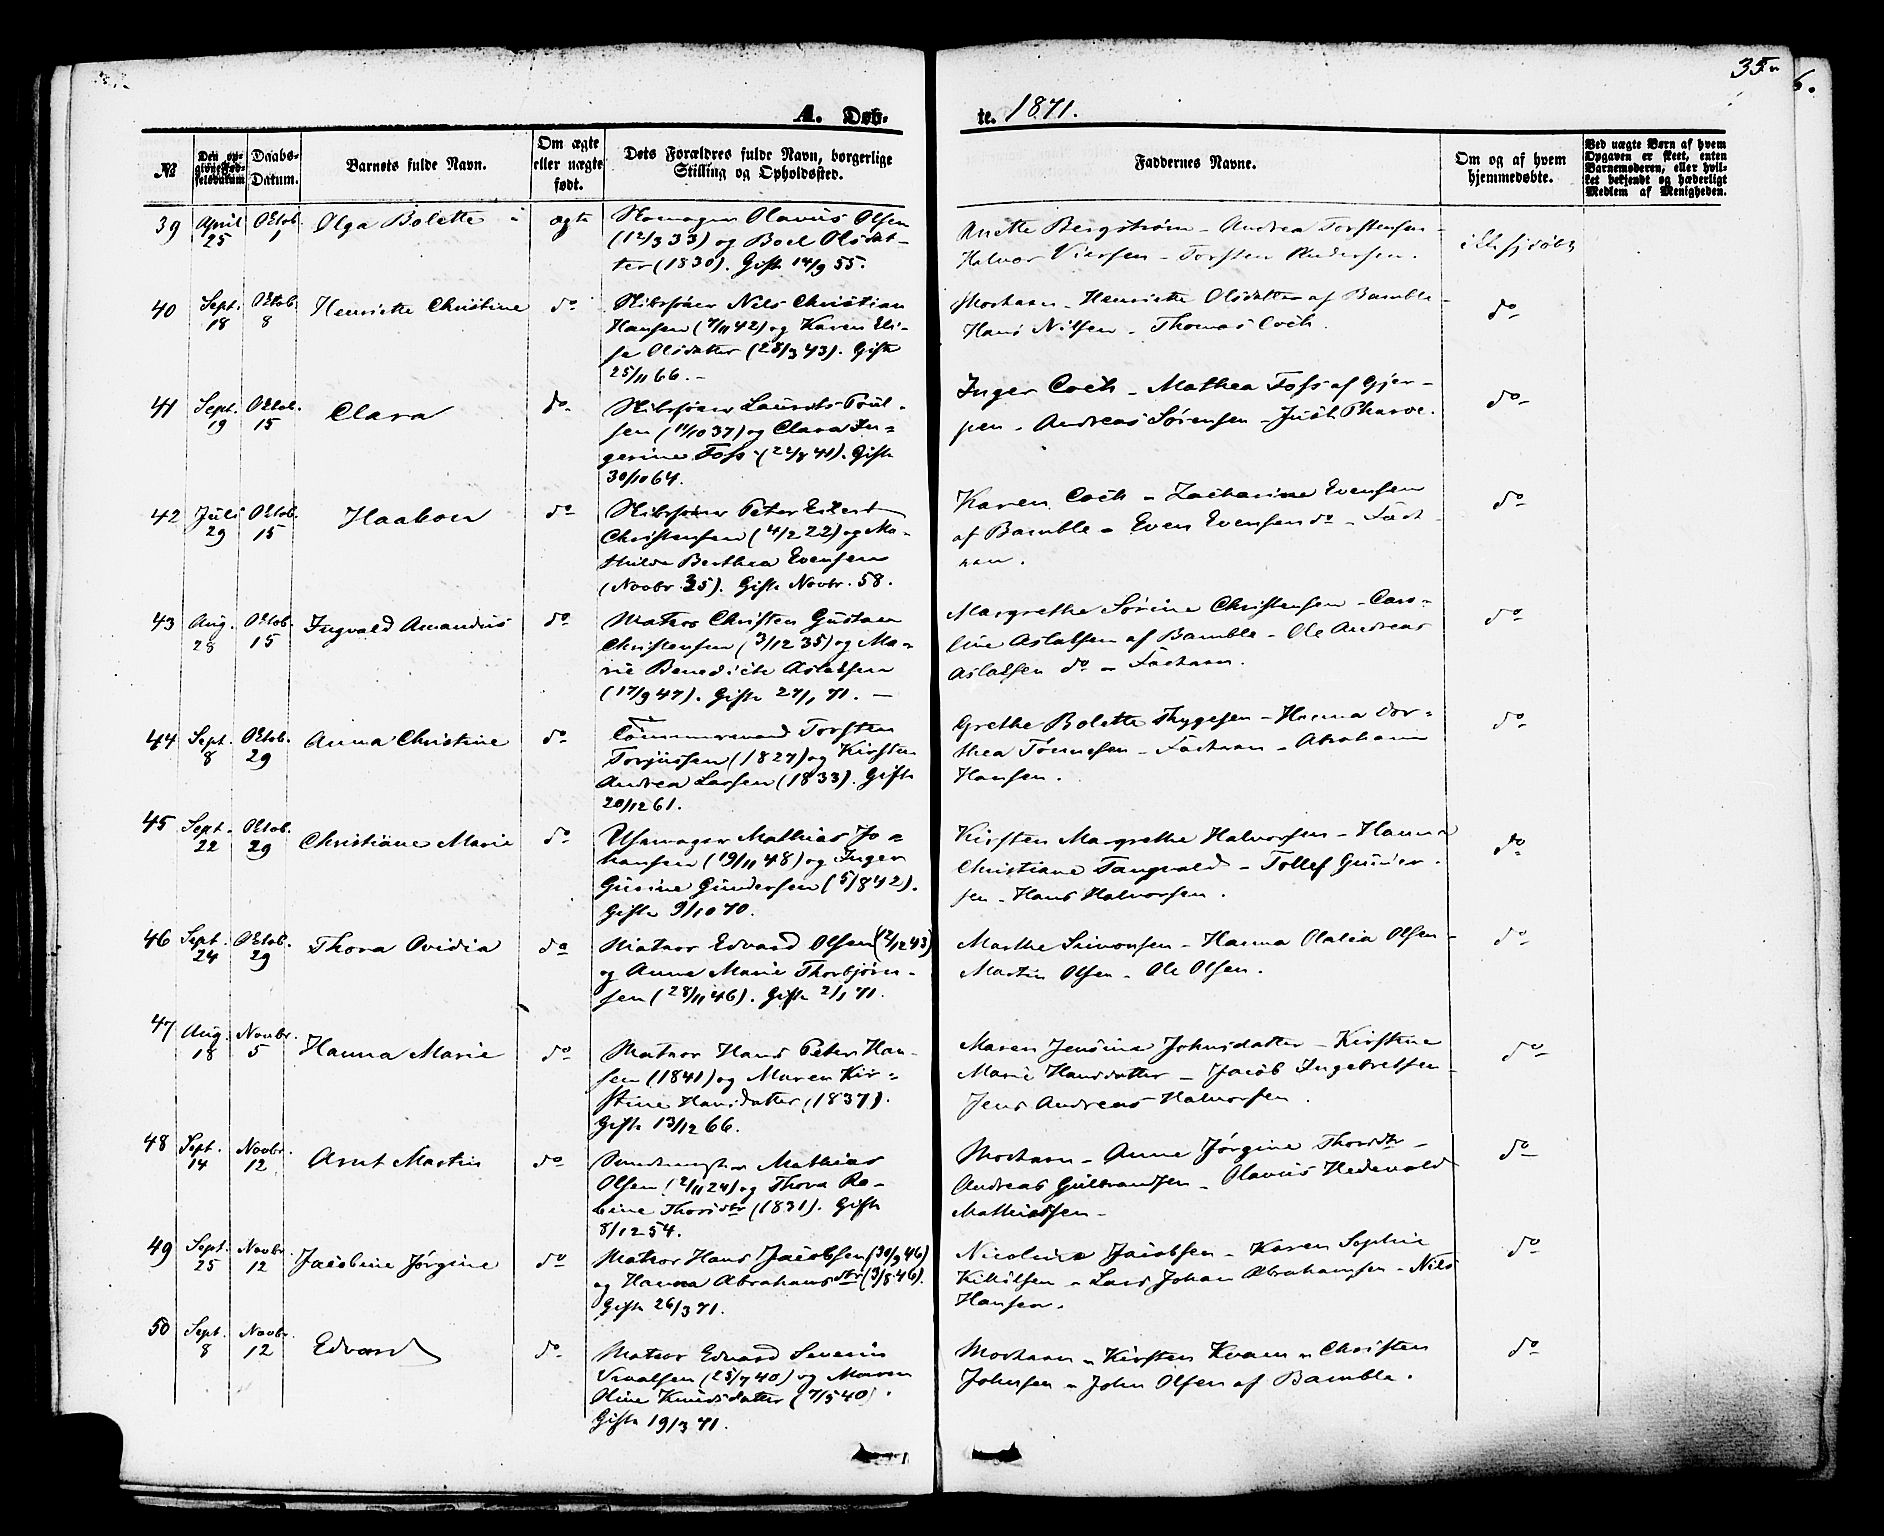 35.
6.
A. Døb-
te. 1871.
№
Den op-
givne Fød-
selsdatum
Daabs-
Datum.
Barnets fulde Navn.
Om ægte
eller uægte
født.
Dets Forældres fulde Navn, borgerlige
Stilling og Opholdssted.
Faddernes Navne.
Om og af hvem
hjemmedøbte.
Ved uægte Børn af hvem
Opgaven er skeet, enten
Barnemoderen, eller hvil-
ket bekjendt og hæderligt
Medlem af Menigheden.
39
April
25
Oktob.
1
Olga Bolette
ægte
Skomager Olavus Olsen
(12/3 33) og Boel Olsdat-
ter (1830). Gift 14/9 55.
Anette Bergstrøm - Andrea Torstensen -
Halvor Viersen - Torsten Andersen.
40
Sept.
18
Oktob.
8
Henriette Christine
do
Skibsfører Nils Christian
Hansen (7/11 42) og Karen Eli-
se Olsdatter (28/3 43). Gift
25/11 66. -
Morhaan - Henriette Olsdatter af Bamble -
Hans Nilsen - Thomas Coch.
do
41
Sept.
19
Oktob.
15
Clara
do
Skibsfører Laurits Poul-
sen (11/10 37) og Clara In-
gerine Foss (22/8 41). Gift
30/10 64.
Inger Coch - Mathea Foss af Gjer-
pen - Andreas Sørensen - Just Pharoe.
do
42
Juli
29
Oktob.
15
Haakon
do
Skibsfører Peter Eckert
Christensen (4/2 22) og Ma-
thilde Berthea Evensen
(Novbr 35). Gift Novbr. 58.
Karen Coch - Zacharine Evensen
af Bamble - Even Evensen do - Fad-
ren.
do
43
Aug.
28
Oktob.
15
Ingvald Amandus
do
Matros Christen Gustav
Christensen (3/12 35) og Ma-
rie Benedicte Aslaksen
(17/9 47). Gift 27/1 71. -
Margrethe Sørine Christensen - Caro-
line Aslaksen af Bamble - Ole Andreas
Aslaksen do - Fadren.
do
44
Sept.
8
Oktob.
29
Anna Christine
do
Tømmermand Torsten
Torjussen (1827) og Kirsten
Andrea Larsen (1833). Gift
20/12 61.
Grethe Bolette Thygesen - Hanna Dor-
thea Tønnesen - Fadren - Abraham
Hansen.
do
45
Sept.
22
Oktob.
29
Christiane Marie
do
Uhrmager Mathias Jo-
hansen (19/11 48) og Inger
Gurine Gundersen (5/8 42).
Gift 9/10 70.
Kirsten Margrethe Halvorsen - Hanna
Christiane Tangvald - Tollef Gunder-
sen - Hans Halvorsen.
do
46
Sept.
24
Oktob.
29
Thora Ovidia
do
Matros Edvard Olsen (2/12 43)
og Anne Marie Thorbjørn-
sen (28/11 46). Gift 2/1 71.
Marthe Simonsen - Hanna Olalia Olsen -
Martin Olsen - Ole Olsen.
do
47
Aug.
18
Novbr.
5
Hanna Marie
do
Matros Hans Peter Han-
sen (1841) og Maren Kir-
stine Hansdatter (1837).
Gift 13/12 66.
Maren Jensine Johnsdatter - Kirstine
Marie Hansdatter - Jacob Ingebretsen -
Jens Andreas Halvorsen.
do
48
Sept.
14
Novbr.
12
Arnt Martin
do
Mathias
Olsen (2/11 24) og Thora Ro-
bine Thorsdtr (1831). Gift
8/12 54.
Morhaan - Anne Jørgine Thorsdtr -
Andreas Gulbrandsen - Olavus Hedevald
Mathiesen -
do
49
Sept.
25
Novbr.
12
Jacobine Jørgine
do
Matros Hans Jacobsen (30/9 46)
og Hanna Abrahamsdtr (3/8 46).
Gift 26/3 71.
Nicoline Jacobsen - Karen Sophie
Kittilsen - Lars Johan Abrahamsen - Nils
Hansen.
do
50
Sept.
8
Novbr.
12
Edvard
do
Matros Edvard Severin
(25/7 40) og Maren
Oline Knudsdatter (7/5 40).
Gift 19/3 71.
Morhaan - Kirsten Kvaen - Christen
Johnsen - John Olsen af Bamble.
do